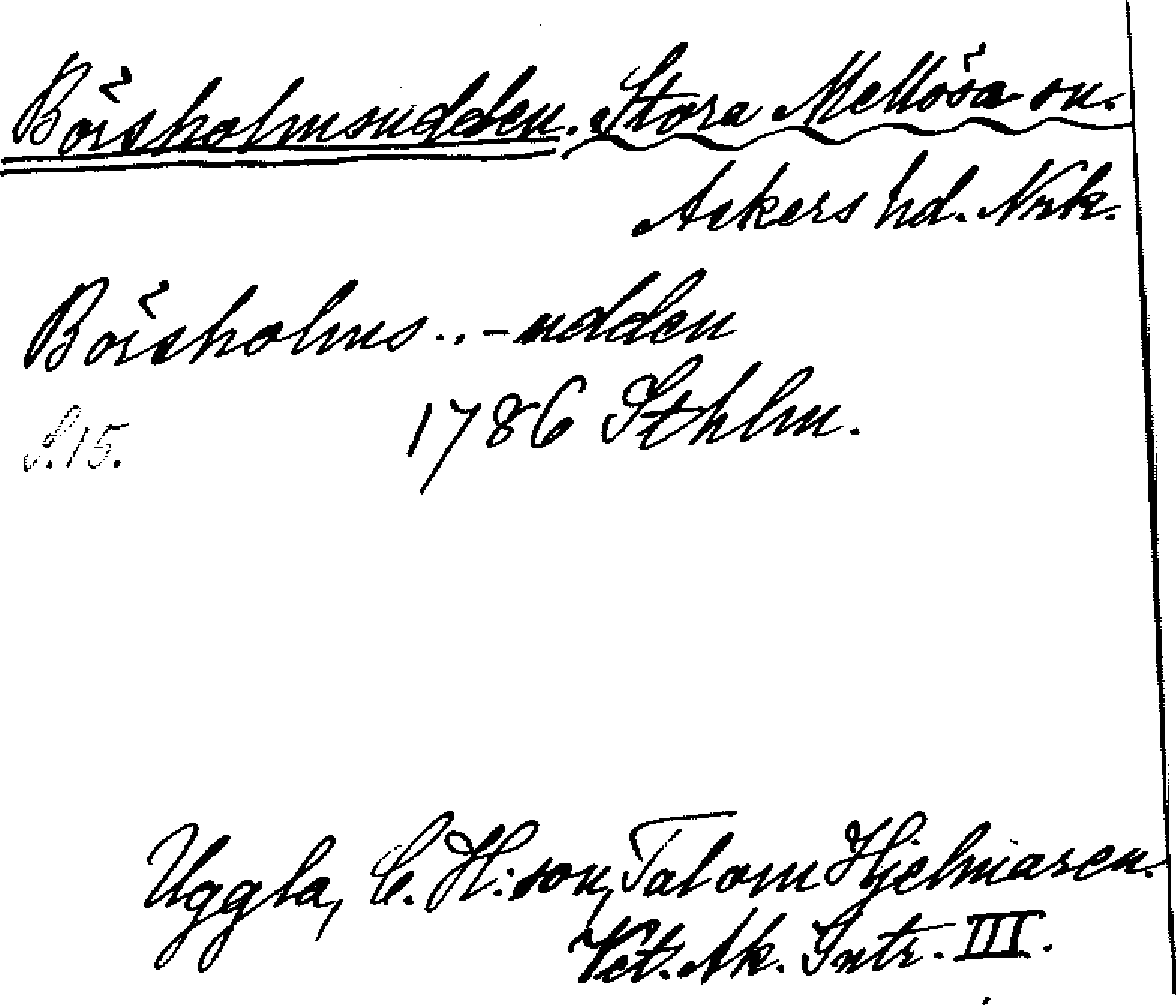 Börsholmsudden. Stora Mellösa sn.
Askers hd. Nrk.
Börsholms..-udden
S.15. 1786 Sthlm.
Uggla, C. H:son, Tal om Hjelmaren.
Vet. Ak. Intr. III.